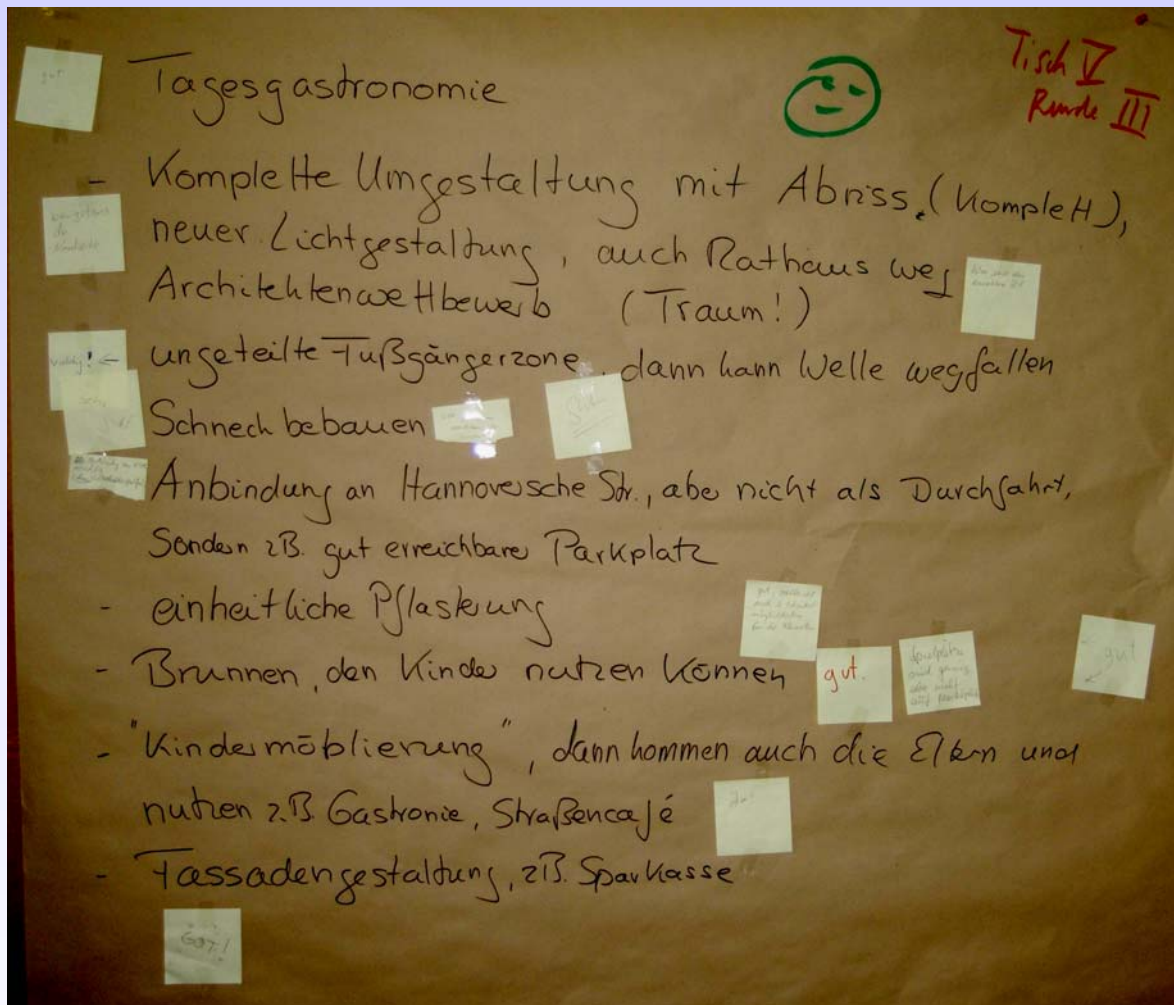 Tisch V
Runde III
gut
Tagesgastronomie
- Komplette Umgestaltung mit Abriss (Komplett),
neuer Lichtgestaltung, auch Rathaus weg
Architektenwettbewerb (Traum!)
ungeteilte Fußgängerzone, dann kann Welle wegfallen
Schneck bebauen
Anbindung an Hannoversche Str., aber nicht als Durchfahrt,
Sondern z.B. gut erreichbarer Parkplatz
- einheitliche Pflasterung
- Brunnen, den Kinder nutzen können
gut.
Spielplätze
sind genug
aber nicht
auf
gut
- "Kindermöblierung", dann kommen auch die Eltern und
nutzen z.B. Gastronie, Straßencafé
- Fassadengestaltung, z.B. Sparkasse
GUT!